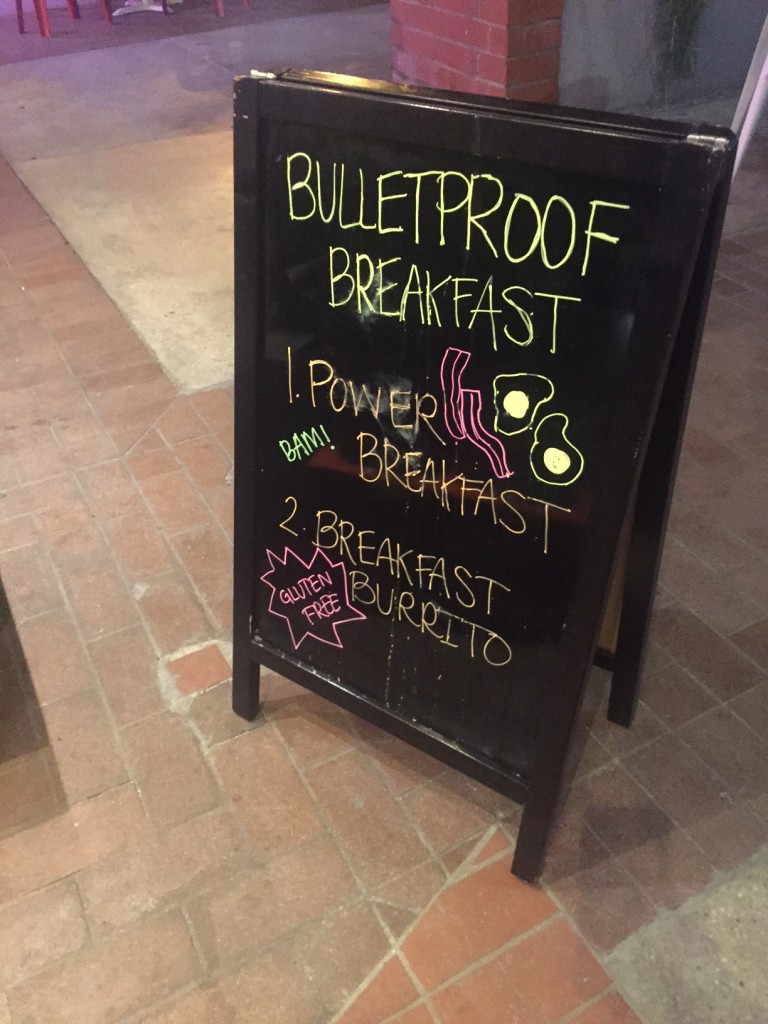 BULLETPROOF
BREAKFAST
1. POWER
BAM!
BREAKFAST
2. BREAKFAST
BURRITO
GLUTEN
FREE